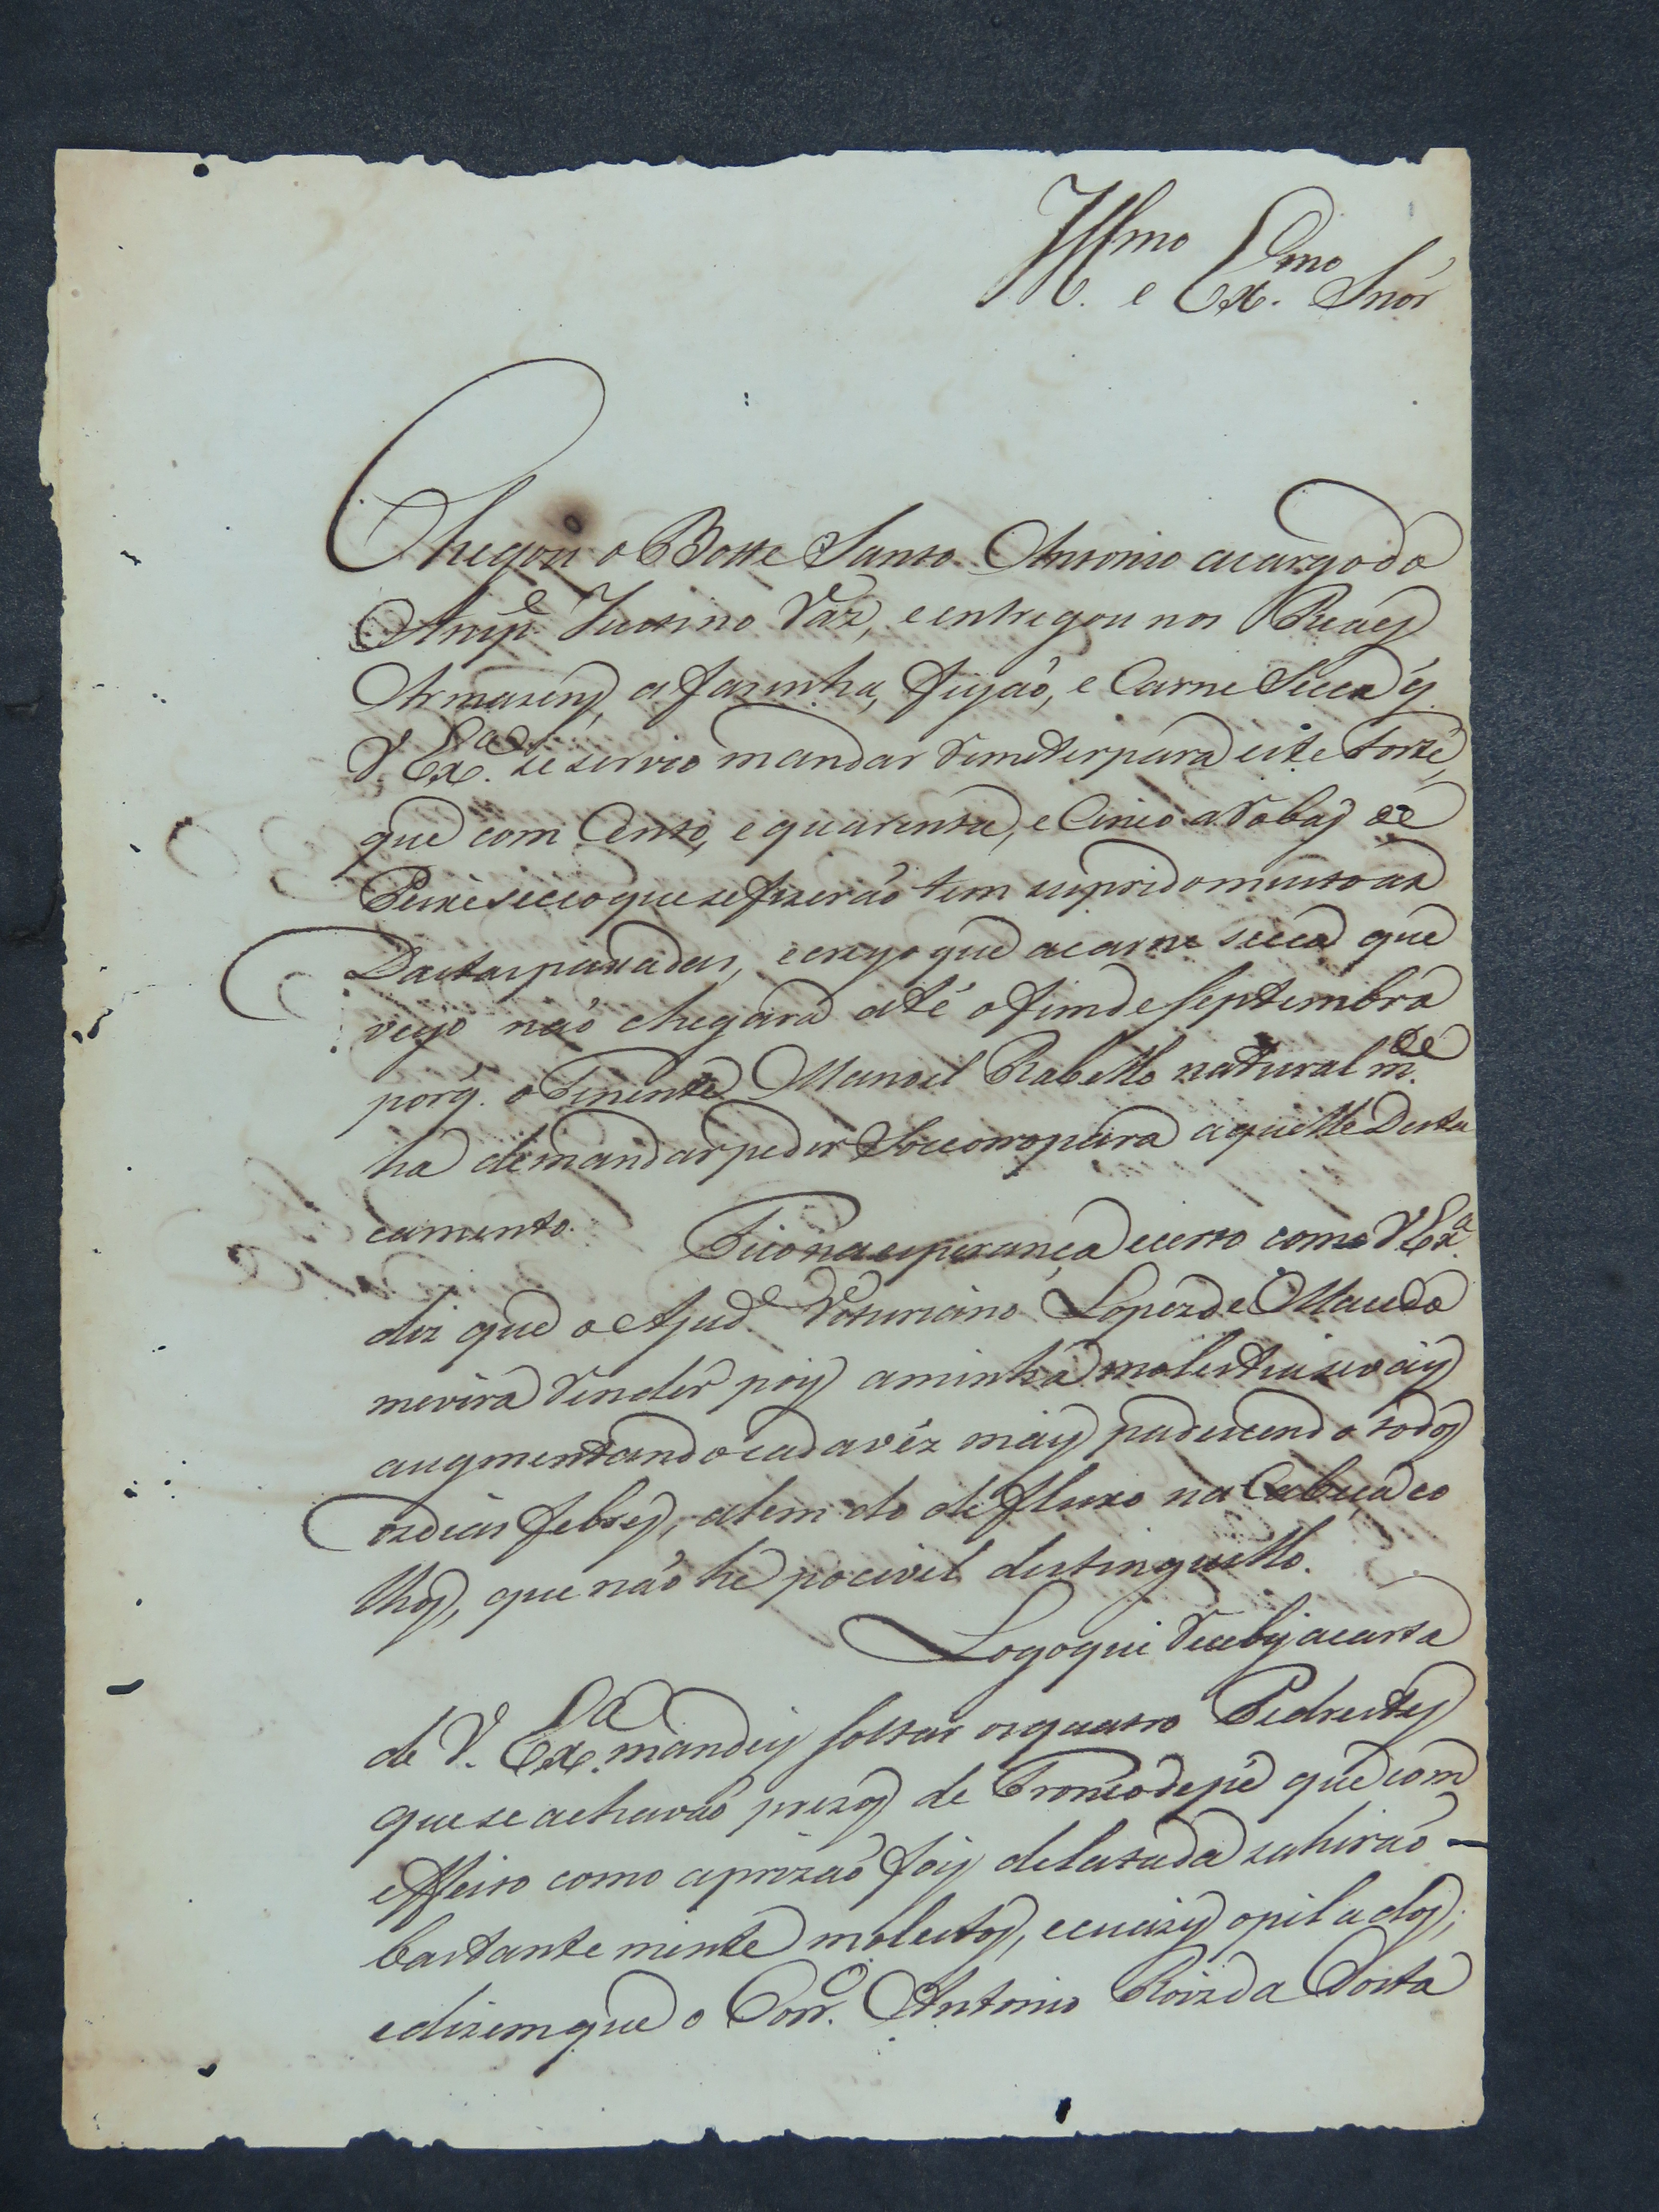 Illmo. e Exmo. Snõr
Chegou o Botte Santo Antonio acargodo
Anspe. Justino Vaz, eentregou nos Reaes
Armazens, a farinha, feijaõ, e Carne Secca q̃
V. Exa. se servio mandar Remeterpara este Forte,
que com Cento, e quarenta, e Cinco aRobas de
Peixe secco que se fizeraõ tem supridomuito as
Dastas passadas, ecreyo que acarne secca que
veyo naõ chegará até ofimde Septembro
porq̃. o Tenente Manoel Rabello natural mde.
ha demandarpedir Soccorropara aquelle Desta
camento. Ficonaesperança ecerto como V Exa.
diz que o Ajude. Victuriano Lopezde Macedo
mevirá Render pois aminha molestiasevay
augmentandocadavéz mais padecendo todos
osdias febres, alem do defluxo na Cabeça eo
lhos, que naõ hé pocivel destinguillo.
Logoque Recebyacarta
de V. Exa. mandey soltar osquatro Pedrestes
quese achavaõ prezos de Troncodepé que com
effeito como aprizaõ foy delatada sahiraõ
bastante mente molestos, ecuazy opilados;
edizemque o Corro. Antonio Roizda Costa